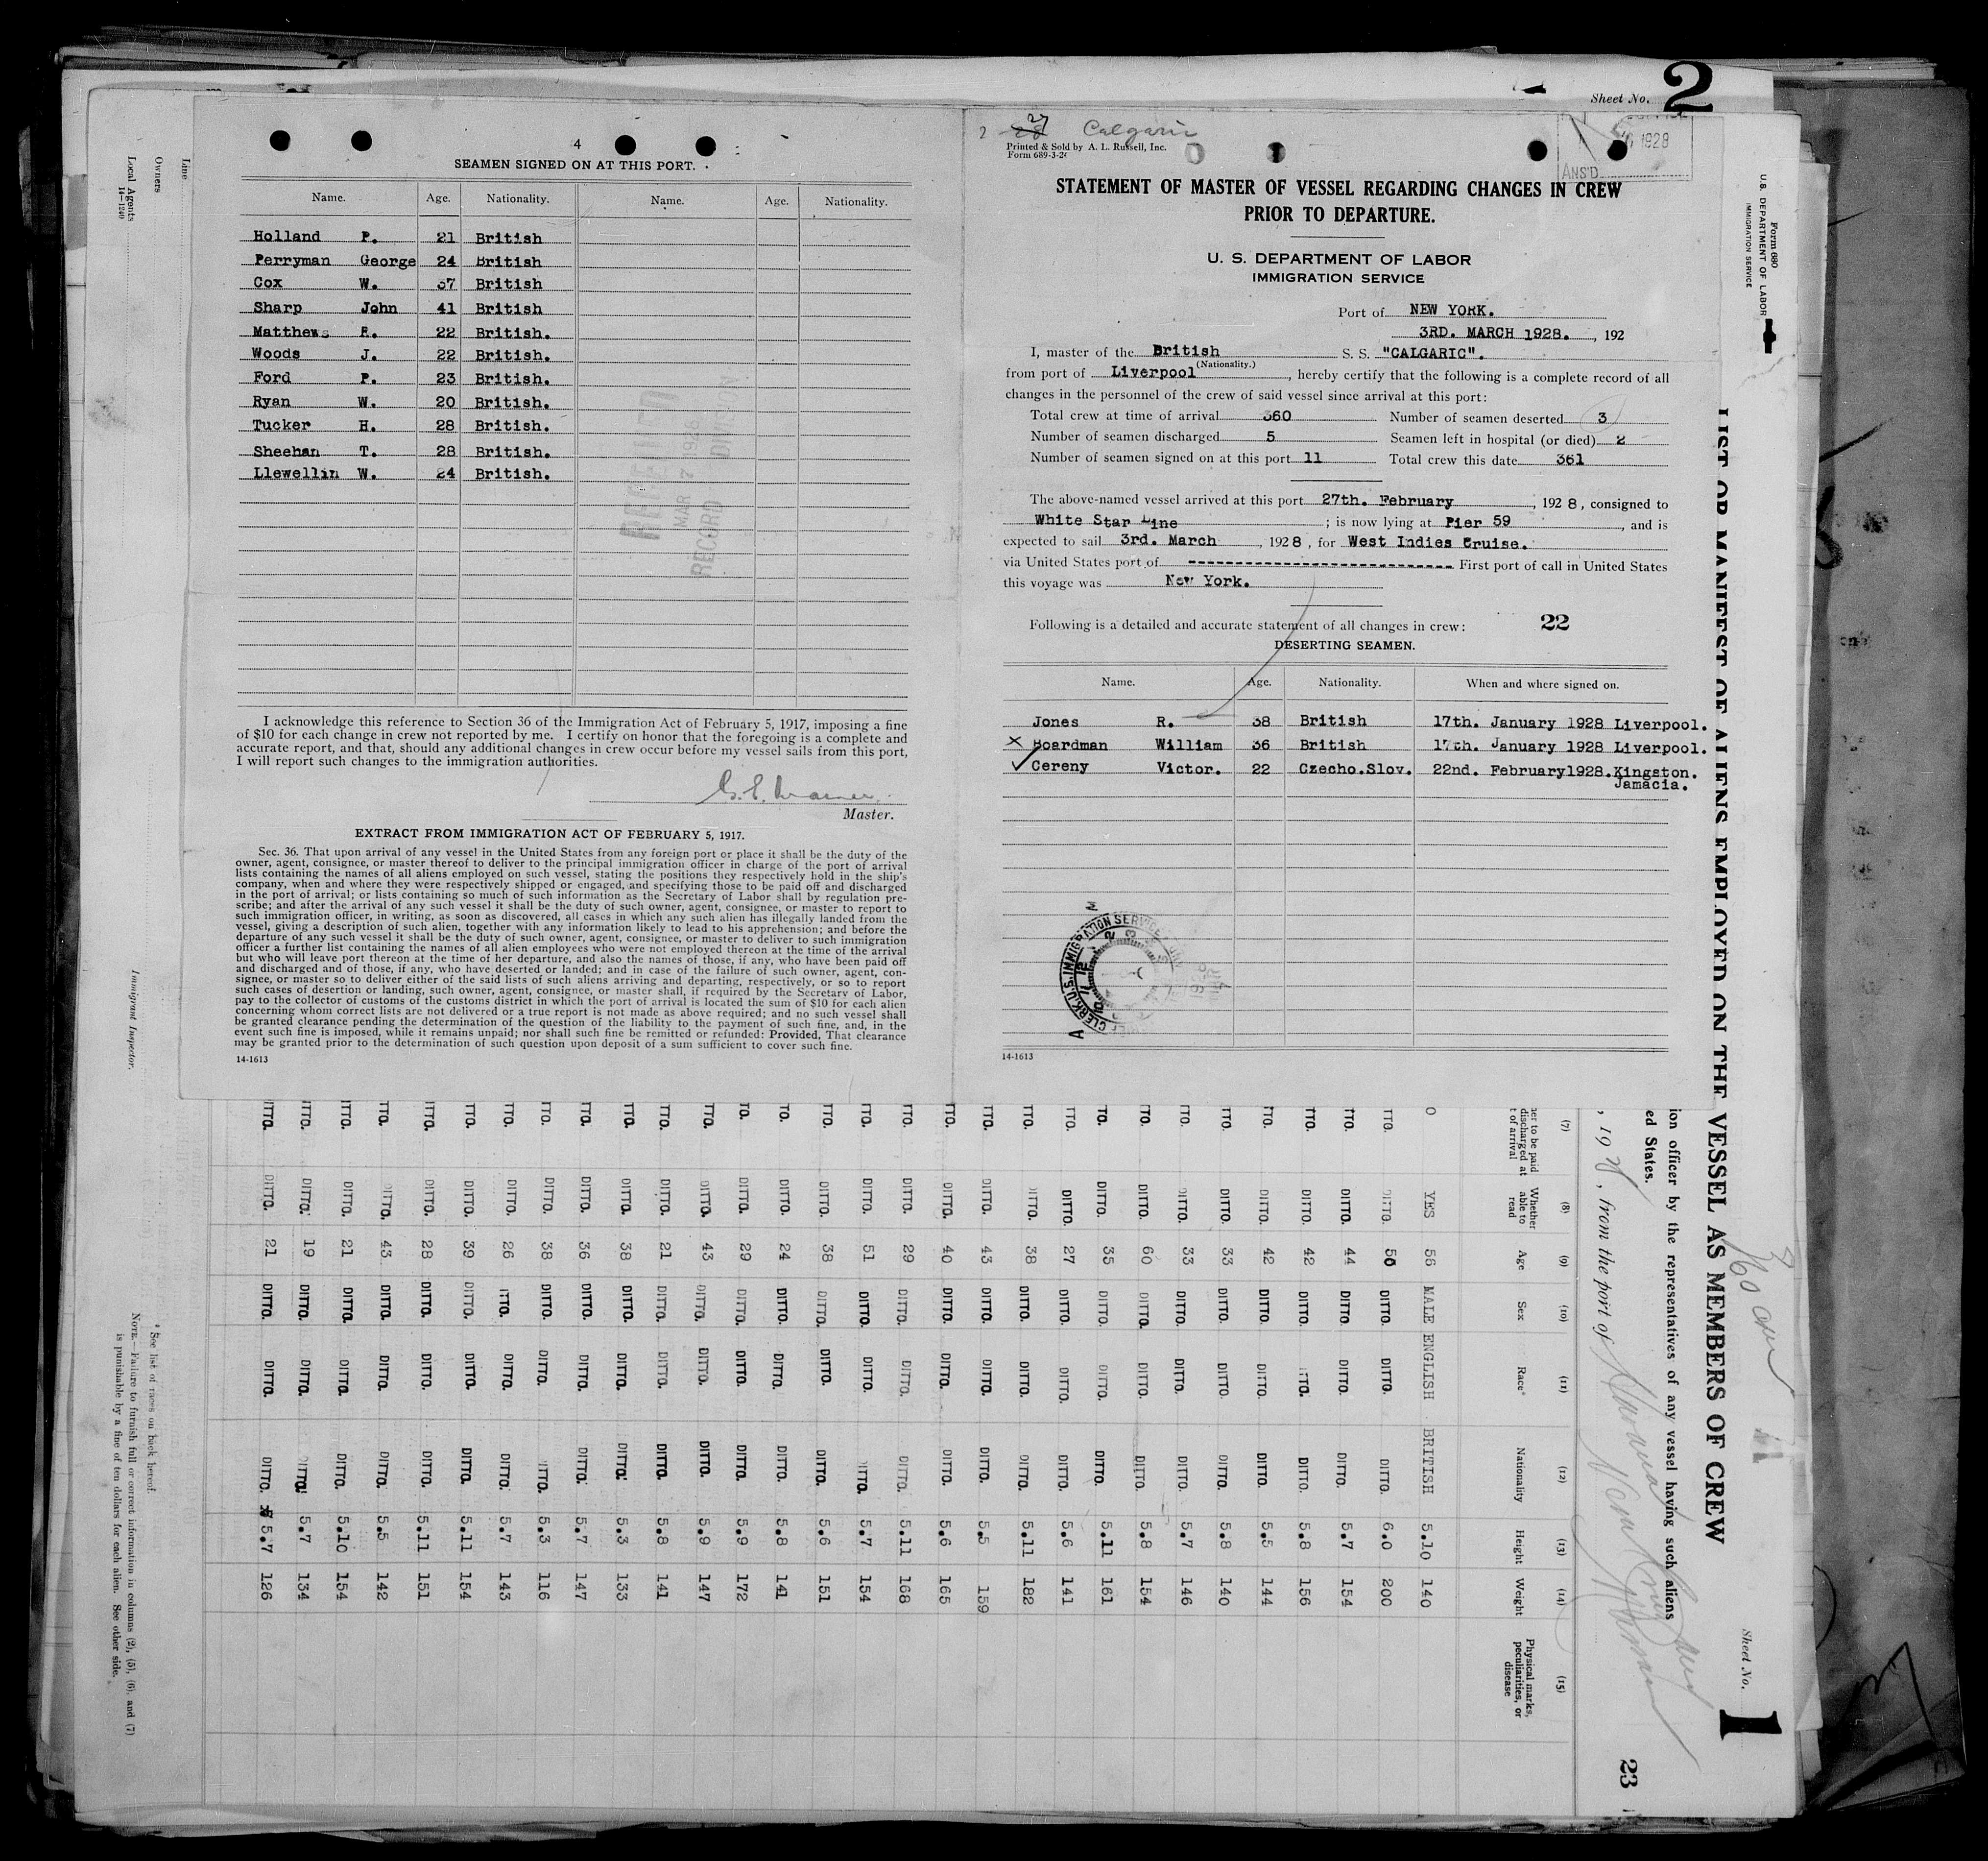 Sheet No. 2
4
SEAMEN SIGNED ON AT THIS PORT.
Name. Age. Nationality. Name. Age. Nationality.
Holland P. 21 British
Perryman George 24 British
Cox W. 37 British
Sharp John 41 British
Matthews R. 22 British.
Woods J. 22 British.
Ford P. 23 British.
Ryan W. 20 British.
Tucker H. 28 British.
Sheehan T. 28 British.
Llewellin W. 24 British.
MAR 7 1928
RECORD DIVISION
I acknowledge this reference to Section 36 of the Immigration Act of February 5, 1917, imposing a fine
of $10 for each change in crew not reported by me. I certify on honor that the foregoing is a complete and
accurate report, and that, should any additional changes in crew occur before my vessel sails from this port,
I will report such changes to the immigration authorities.
Master.
EXTRACT FROM IMMIGRATION ACT OF FEBRUARY 5, 1917.
Sec. 36. That upon arrival of any vessel in the United States from any foreign port or place it shall be the duty of the
owner, agent, consignee, or master thereof to deliver to the principal immigration officer in charge of the port of arrival
lists containing the names of all aliens employed on such vessel, stating the positions they respectively hold in the ship's
company, when and where they were respectively shipped or engaged, and specifying those to be paid off and discharged
in the port of arrival; or lists containing so much of such information as the Secretary of Labor shall by regulation pre-
scribe; and after the arrival of any such vessel it shall be the duty of such owner, agent, consignee, or master to report to
such immigration officer, in writing, as soon as discovered, all cases in which any such alien has illegally landed from the
vessel, giving a description of such alien, together with any information likely to lead to his apprehension; and before the
departure of any such vessel it shall be the duty of such owner, agent, consignee, or master to deliver to such immigration
officer a further list containing the names of all alien employees who were not employed thereon at the time of the arrival
but who will leave port thereon at the time of her departure, and also the names of those, if any, who have been paid off
and discharged and of those, if any, who have deserted or landed; and in case of the failure of such owner, agent, con-
signee, or master so to deliver either of the said lists of such aliens arriving and departing, respectively, or so to report
such cases of desertion or landing, such owner, agent, consignee, or master shall, if required by the Secretary of Labor,
pay to the collector of customs of the customs district in which the port of arrival is located the sum of $10 for each alien
concerning whom correct lists are not delivered or a true report is not made as above required; and no such vessel shall
be granted clearance pending the determination of the question of the liability to the payment of such fine, and, in the
event such fine is imposed, while it remains unpaid; nor shall such fine be remitted or refunded: Provided, That clearance
may be granted prior to the determination of such question upon deposit of a sum sufficient to cover such fine.
14-1613
2 27 Calgaric
Printed & Sold by A. L. Russell, Inc.
Form 689-3-2
1928
ANS'D
STATEMENT OF MASTER OF VESSEL REGARDING CHANGES IN CREW
PRIOR TO DEPARTURE.
U. S. DEPARTMENT OF LABOR
IMMIGRATION SERVICE
Port of NEW YORK.
3RD. MARCH 1928. , 192
I, master of the British S. S. "CALGARIC".
(Nationality.)
from port of Liverpool , hereby certify that the following is a complete record of all
changes in the personnel of the crew of said vessel since arrival at this port:
Total crew at time of arrival 360 Number of seamen deserted 3
Number of seamen discharged 5 Seamen left in hospital (or died) 2
Number of seamen signed on at this port 11 Total crew this date 361
The above-named vessel arrived at this port 27th. February , 1928, consigned to
White Star Line ; is now lying at Pier 59 , and is
expected to sail 3rd. March , 1928, for West Indies Cruise.
via United States port of ---------------------------- First port of call in United States
this voyage was New York.
Following is a detailed and accurate statement of all changes in crew: 22
DESERTING SEAMEN.
Name. Age. Nationality. When and where signed on.
Jones R. 38 British 17th. January 1928 Liverpool.
Boardman William 36 British 17th. January 1928 Liverpool.
Cereny Victor. 22 Czecho.Slov. 22nd. February1928.Kingston.
Jamacia.
14-1613
Form 680
U. S. DEPARTMENT OF LABOR
IMMIGRATION SERVICE
LIST OR MANIFEST OF ALIENS EMPLOYED ON THE VESSEL AS MEMBERS OF CREW
Sheet No. 1
ion officer by the representatives of any vessel having such aliens
ed States.
, 1928, from the port of
23
(7) (8) (9) (10) (11) (12) (13) (14) (15)
her to be paid
discharged at
t of arrival
Whether
able to
read
Age
Sex
Race*
Nationality
Height
Weight
Physical marks,
peculiarities, or
disease
O YES 56 MALE ENGLISH BRITISH 5.10 140
TTO. DITTO. 50 DITTO. DITTO. DITTO. 6.0 200
TTO. DITTO. 44 DITTO. DITTO. DITTO. 5.7 154
TTO. DITTO. 42 DITTO. DITTO. DITTO. 5.8 156
TTO. DITTO. 42 DITTO. DITTO. DITTO. 5.5 144
TTO. DITTO. 33 DITTO. DITTO. DITTO. 5.8 140
TTO. DITTO. 33 DITTO. DITTO. DITTO. 5.7 146
TO. DITTO. 60 DITTO. DITTO. DITTO. 5.8 154
TO. DITTO. 35 DITTO. DITTO. DITTO. 5.11 161
TTO. DITTO. 27 DITTO. DITTO. DITTO. 5.6 141
TTO. DITTO. 38 DITTO. DITTO. DITTO. 5.11 182
TTO. DITTO. 43 DITTO. DITTO. DITTO. 5.5 159
TTO. DITTO. 40 DITTO. DITTO. DITTO. 5.6 165
TTO. DITTO. 29 DITTO. DITTO. DITTO. 5.11 168
TTO. DITTO. 51 DITTO. DITTO. DITTO. 5.7 154
TTO. DITTO. 38 DITTO. DITTO. DITTO. 5.6 151
TO. DITTO. 24 DITTO. DITTO. DITTO. 5.8 141
TO. DITTO. 29 DITTO. DITTO. DITTO. 5.9 172
TTO. DITTO. 43 DITTO. DITTO. DITTO. 5.9 147
TTO. DITTO. 21 DITTO. DITTO. DITTO. 5.8 141
TTO. DITTO. 38 DITTO. DITTO. DITTO. 5.3 133
TTO. DITTO. 36 DITTO. DITTO. DITTO. 5.7 147
TTO. DITTO. 38 DITTO. DITTO. DITTO. 5.3 116
TTO. DITTO. 26 DITTO. DITTO. DITTO. 5.7 143
TTO. DITTO. 39 DITTO. DITTO. DITTO. 5.11 154
TTO. DITTO. 28 DITTO. DITTO. DITTO. 5.11 151
TTO. DITTO. 43 DITTO. DITTO. DITTO. 5.5 142
TTO. DITTO. 21 DITTO. DITTO. DITTO. 5.10 154
TTO. DITTO. 19 DITTO. DITTO. DITTO. 5.7 134
ITTO. DITTO. 21 DITTO. DITTO. DITTO. 5.7 126
Line
Owners
Local Agents
14-1240
Immigrant Inspector.
* See list of races on back hereof.
NOTE.—Failure to furnish full or correct information in columns (2), (5), (6), and (7)
is punishable by a fine of ten dollars for each alien. See other side.